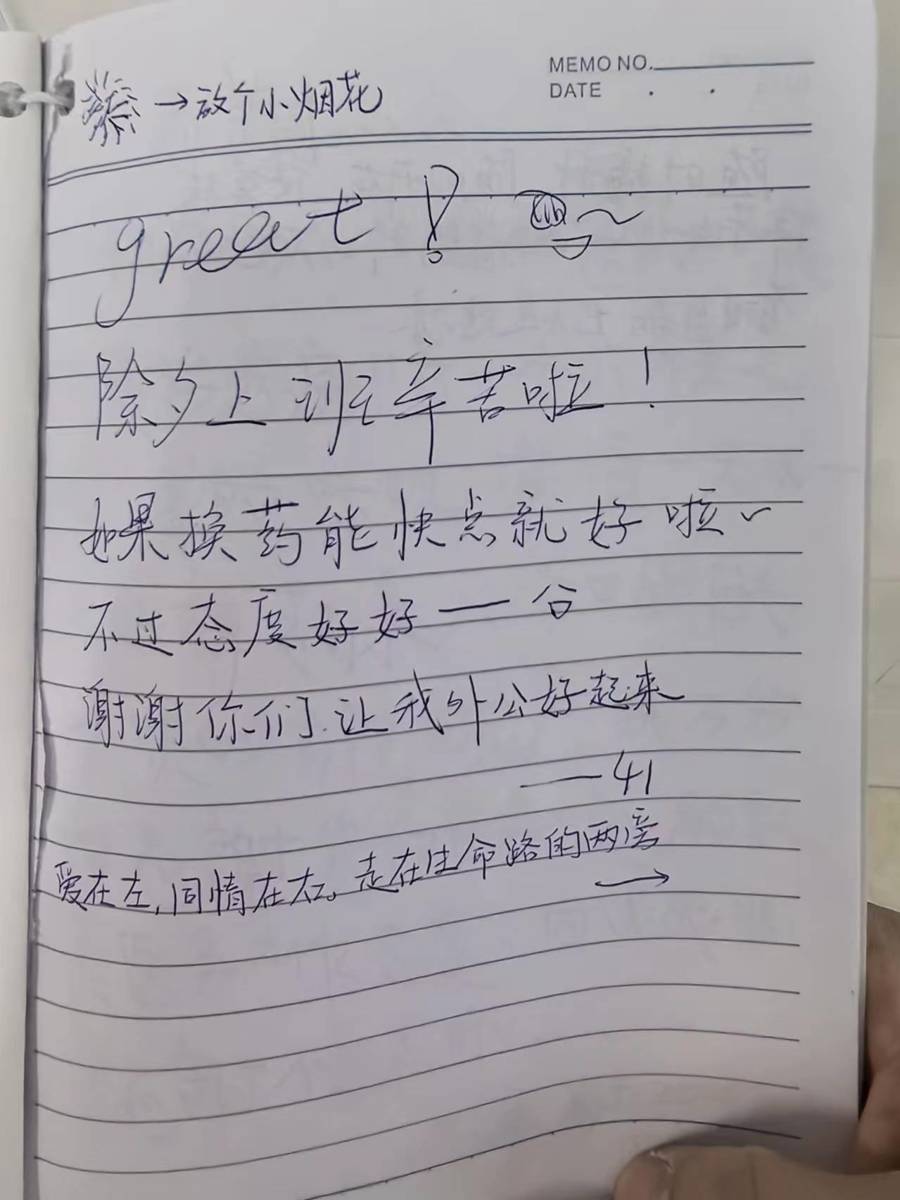 →放个小烟花
MEMO NO.
DATE . .
great!
除夕上班辛苦啦!
如果换药能快点就好啦~
不过态度好好——
谢谢你们.让我外公好起来
——41
爱在左,同情在右。走在生命路的两旁